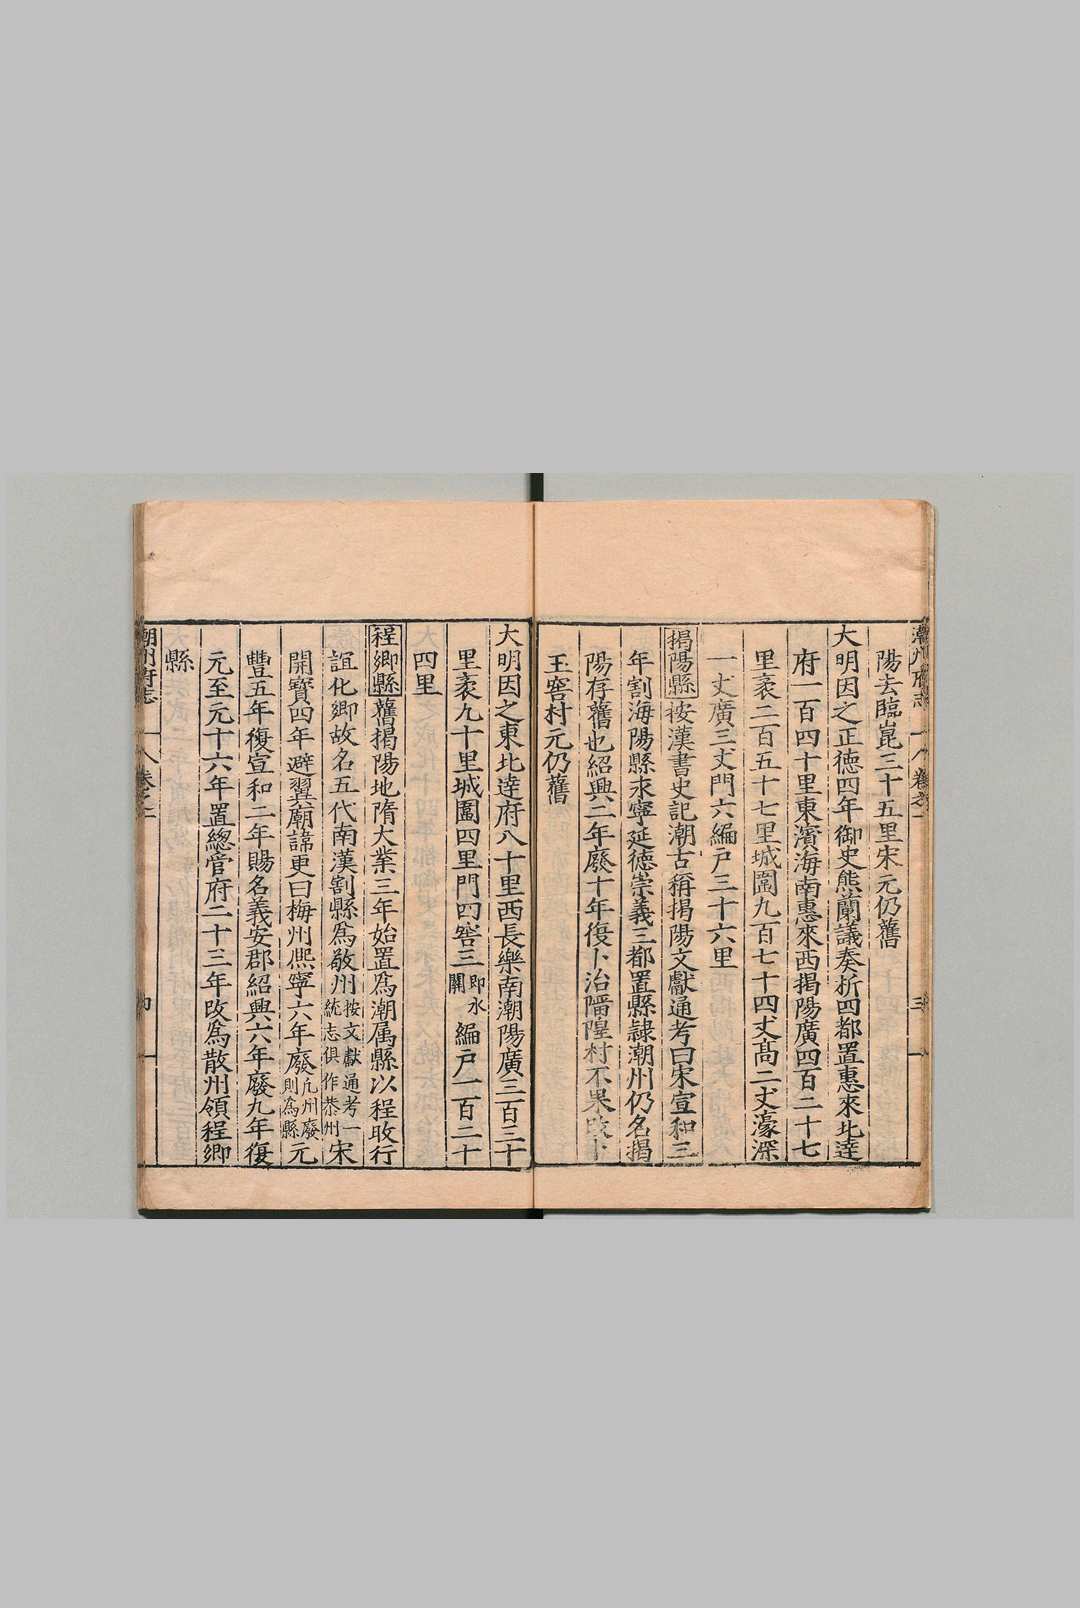 潮州府志 卷之一 三
陽去臨崑三十五里宋元仍舊
大明因之正德四年御史熊蘭議奏折四都置惠來北逹
府一百四十里東濱海南惠來西揭陽廣四百二十七
里袤二百五十七里城圍九百七十四丈髙二丈濠深
一丈廣三丈門六編戸三十六里
揭陽縣按漢書史記潮古稱揭陽文獻通考曰宋宣和三
年割海陽縣永寧延德崇義三都置縣隷潮州仍名揭
陽存舊也紹興二年廢十年復卜治𨻶隍村不果改卜
玉窖村元仍舊
大明因之東北逹府八十里西長樂南潮陽廣三百三十
里袤九十里城圍四里門四窖三即水關編戸一百二十
四里
程鄉縣舊揭陽地隋大業三年始置爲潮属縣以程旼行
誼化鄉故名五代南漢割縣爲敬州按文獻通考一統志俱作恭州宋
開寶四年避翼廟諱更曰梅州熈寧六年廢凢州廢則為縣元
豐五年復宣和二年賜名義安郡紹興六年廢九年復
元至元十六年置總管府二十三年改爲散州領程鄉
縣
潮州府志 卷之一 四